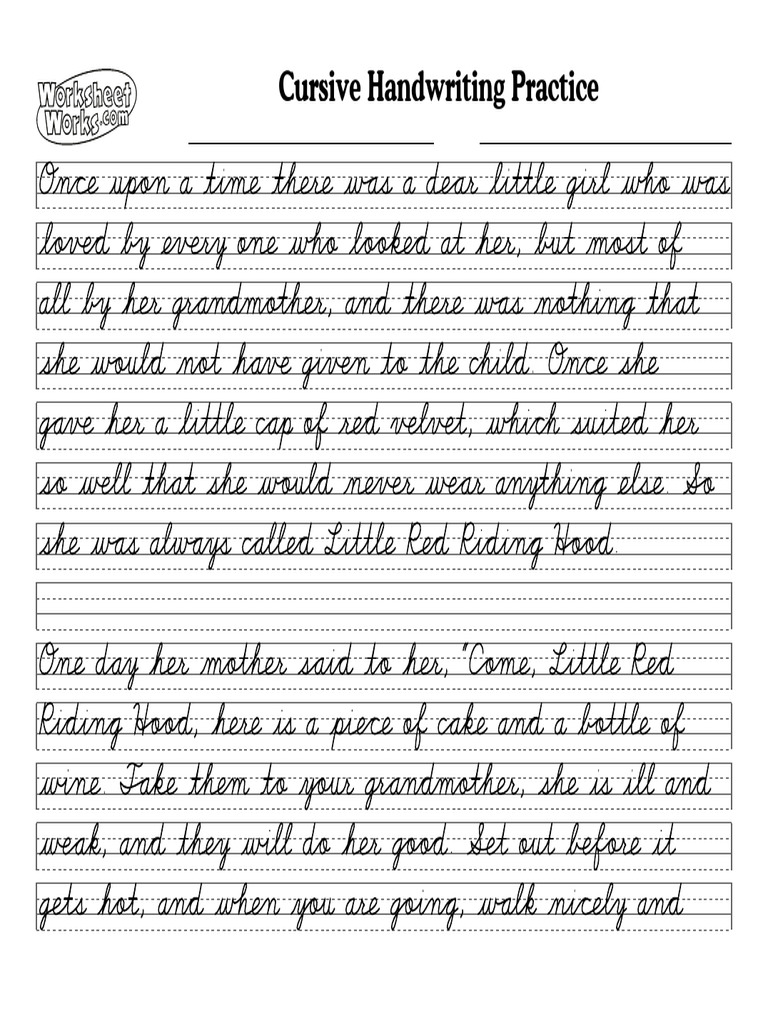 Worksheet
Works.com
Cursive Handwriting Practice
Once upon a time there was a dear little girl who was
loved by every one who looked at her, but most of
all by her grandmother, and there was nothing that
she would not have given to the child. Once she
gave her a little cap of red velvet, which suited her
so well that she would never wear anything else. So
she was always called Little Red Riding Hood.
One day her mother said to her, "Come, Little Red
Riding Hood, here is a piece of cake and a bottle of
wine. Take them to your grandmother, she is ill and
weak, and they will do her good. Set out before it
gets hot, and when you are going, walk nicely and